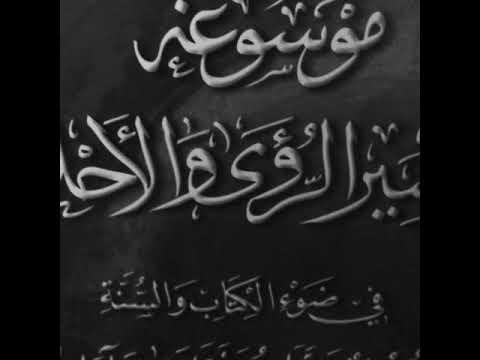 مَوْسُوعَةُ
ـسير الرُّؤَى وَالأَحْلـ
فِي ضَوْءِ الكِتَابِ وَالسُّنَّةِ